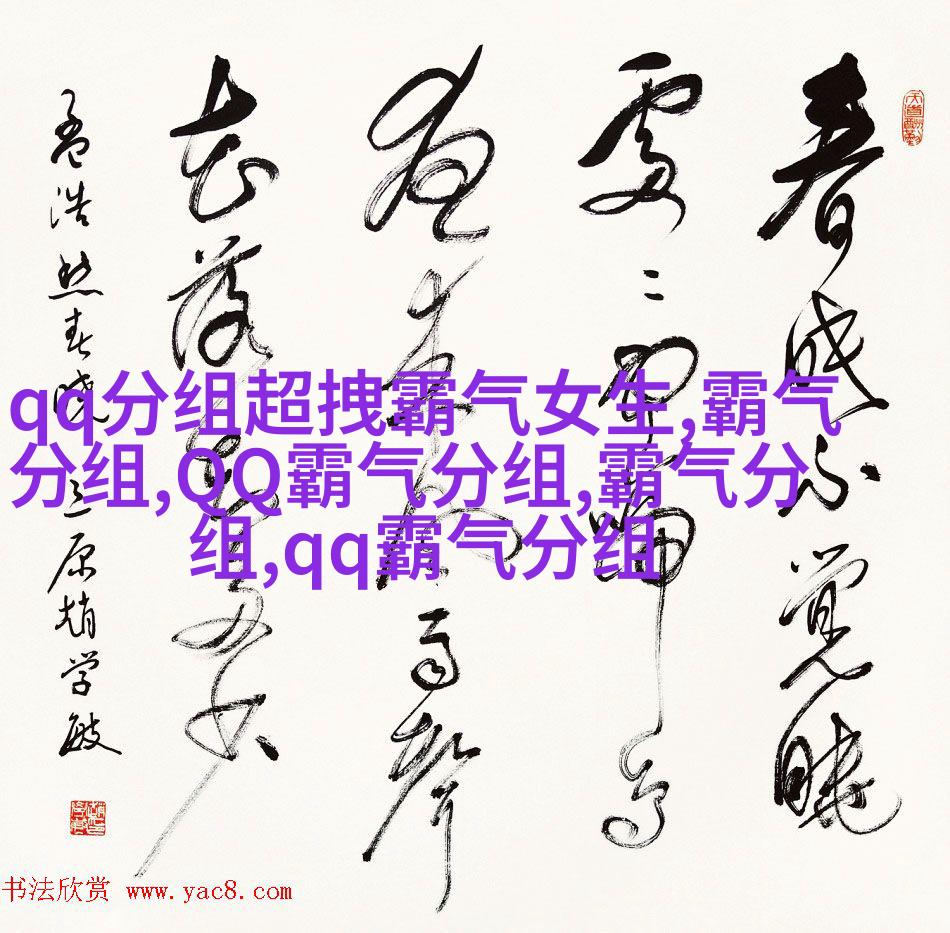 春眠不觉晓
處二闻啼鸟
夜来风雨聲
花落知多少
孟浩然春晓 太原趙学敏
天道酬勤
qq分组超拽霸气女生,霸气
分组,QQ霸气分组,霸气分
组,qq霸气分组
书法欣赏 www.yac8.com